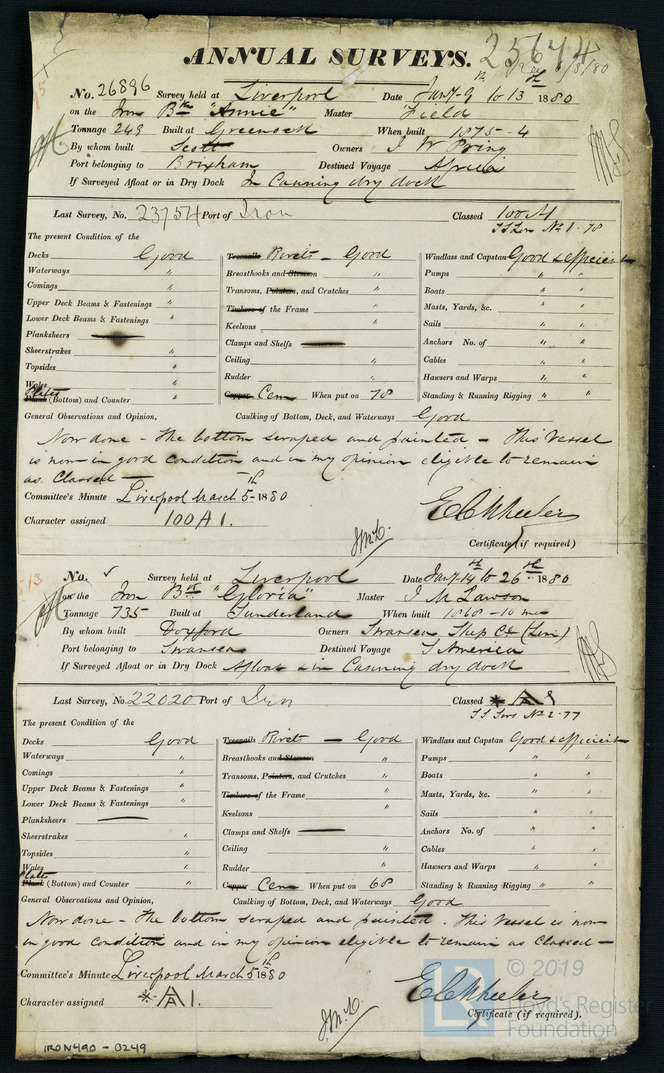 25674
ANNUAL SURVEYS.
Rec 6/8/80
No. 26896 Survey held at Liverpool Date Jany 9th to 13th 1880
on the Iron Bk "Annie" Master Field
Tonnage 249 Built at Greenock When built 1875-4
By whom built Scott Owners J W Pring
Port belonging to Brixham Destined Voyage Africa
If Surveyed Afloat or in Dry Dock In Canning dry dock
Last Survey, No. 23754 Port of Iron Classed 100A1
SS Lvr No 1-78
The present Condition of the
Decks Good Treenails Rivets - Good Windlass and Capstan Good & efficient
Waterways " Breasthooks and Stemson " Pumps " "
Comings " Transoms, Pointers, and Crutches " Boats " "
Upper Deck Beams & Fastenings " Timbers of the Frame " Masts, Yards, &c. " "
Lower Deck Beams & Fastenings " Keelsons " Sails " "
Planksheers — Clamps and Shelfs — Anchors No. of " "
Sheerstrakes " Ceiling " Cables " "
Topsides " Rudder " Hawsers and Warps " "
Wales
Plates
Plank (Bottom) and Counter " Copper Cem When put on 78 Standing & Running Rigging " "
General Observations and Opinion, Caulking of Bottom, Deck, and Waterways Good
Now done - The bottom scraped and painted - This Vessel
is now in good condition and in my opinion eligible to remain
as Classed —
Committee's Minute Liverpool March 5th 1880
Character assigned 100A1.
E C Wheeler
Certificate (if required)
No. ✓ Survey held at Liverpool Date Jany 14th to 26th 1880
on the Iron Bk "Gloria" Master J M Lawson
Tonnage 735 Built at Sunderland When built 1868-10 mo
By whom built Doxford Owners Swansea Ship Co (Lim)
Port belonging to Swansea Destined Voyage S America
If Surveyed Afloat or in Dry Dock Afloat & in Canning dry dock
Last Survey, No. 22020 Port of Iron Classed
SS Lvr No 2-77
The present Condition of the
Decks Good Treenails Rivets — Good Windlass and Capstan Good & efficient
Waterways " Breasthooks and Stemson " Pumps " "
Comings " Transoms, Pointers, and Crutches " Boats " "
Upper Deck Beams & Fastenings " Timbers of the Frame " Masts, Yards, &c. " "
Lower Deck Beams & Fastenings " Keelsons " Sails " "
Planksheers — Clamps and Shelfs — Anchors No. of " "
Sheerstrakes " Ceiling " Cables " "
Topsides " Rudder " Hawsers and Warps " "
Wales
Plates
Plank (Bottom) and Counter " Copper Cem When put on 68 Standing & Running Rigging " "
General Observations and Opinion, Caulking of Bottom, Deck, and Waterways Good
Now done - The bottom scraped and painted. This Vessel is now
in good condition and in my opinion eligible to remain as Classed —
Committee's Minute Liverpool March 5th 1880
Character assigned
E C Wheeler
Certificate (if required).
© 2019
Lloyd's Register
Foundation
IRON490-0249